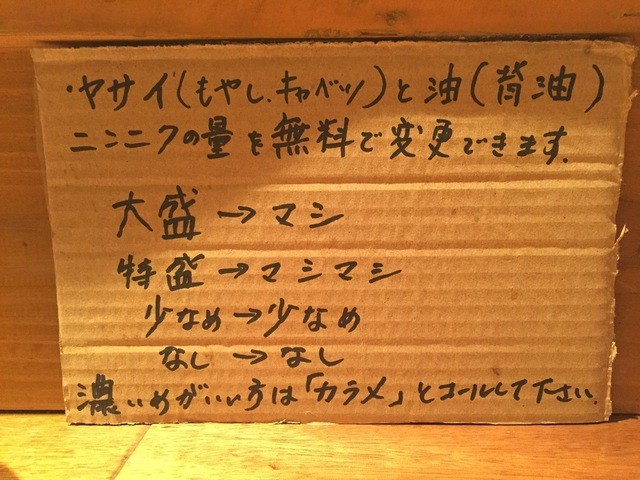 ・ヤサイ(もやし、キャベツ)と油(背油)
ニンニクの量を無料で変更できます。
大盛→マシ
特盛→マシマシ
少なめ→少なめ
なし→なし
濃いめがいい方は「カラメ」とコールして下さい。